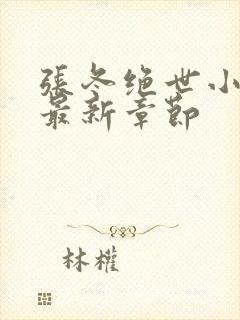 張冬绝世小
最新章節
林權